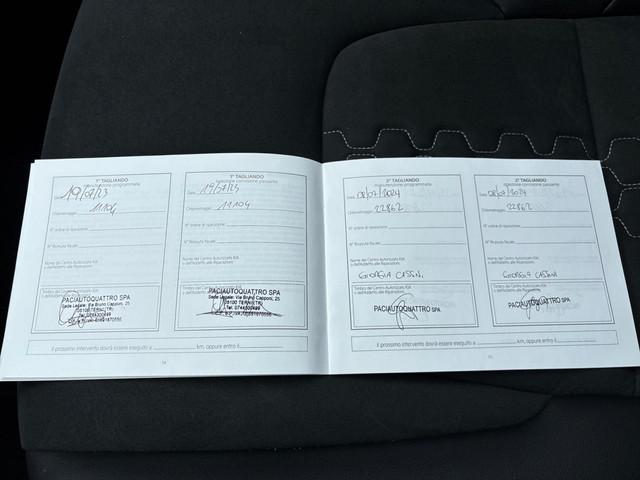 1° TAGLIANDO
Manutenzione programmata
Data 19/07/23
Chilometraggio 11104
N° ordine di riparazione
N° Ricevuta fiscale
Nome del Centro Autorizzato KIA
o dell'Addetto alle Riparazioni
Timbro del Centro Autorizzato KIA
PACIAUTOQUATTRO SPA
Sede Legale: Via Bruno Capponi, 25
05100 TERNI(TR)
1° TAGLIANDO
Ispezione corrosione passante
Data 19/07/23
Chilometraggio 11104
N° ordine di riparazione
N° Ricevuta fiscale
Nome del Centro Autorizzato KIA
o dell'Addetto alle Riparazioni
PACIAUTOQUATTRO SPA
Sede Legale: Via Bruno Capponi, 25
05100 TERNI(TR)
Il prossimo intervento dovrà essere eseguito a km, oppure entro il
14
2° TAGLIANDO
Manutenzione programmata
Data 08/07/2024
Chilometraggio 22862
N° ordine di riparazione
N° Ricevuta fiscale
Nome del Centro Autorizzato KIA
o dell'Addetto alle Riparazioni
Timbro del Centro Autorizzato KIA
o dell'Addetto alle Riparazioni
PACIAUTOQUATTRO SPA
2° TAGLIANDO
Ispezione corrosione passante
Data 08/07/2024
Chilometraggio 22862
N° ordine di riparazione
N° Ricevuta fiscale
Nome del Centro Autorizzato KIA
o dell'Addetto alle Riparazioni
Timbro del Centro Autorizzato KIA
o dell'Addetto alle Riparazioni
PACIAUTOQUATTRO SPA
Il prossimo intervento dovrà essere eseguito a km, oppure entro il
15